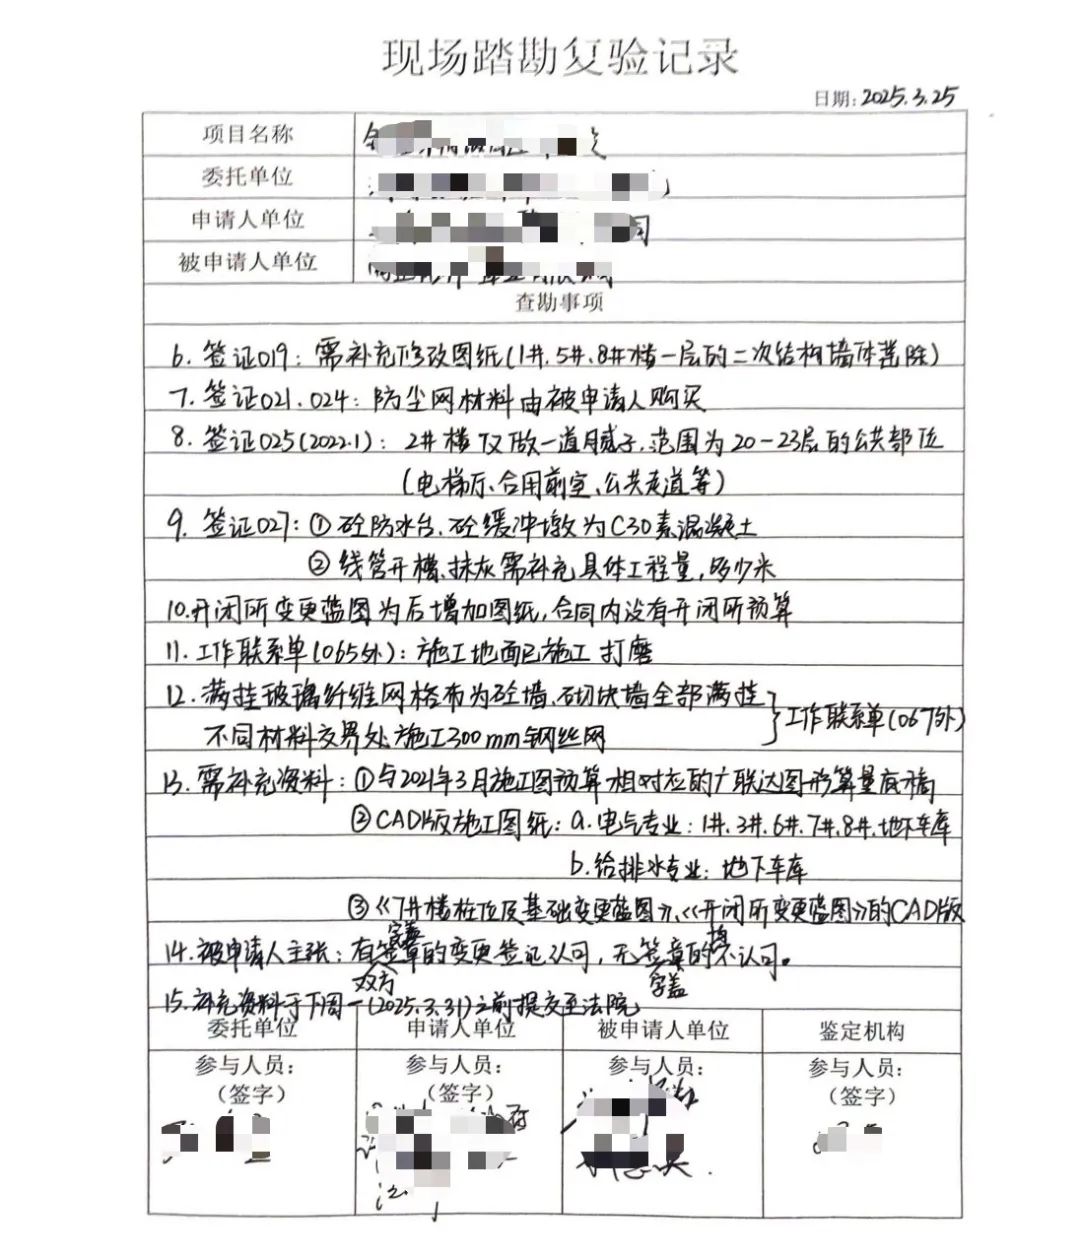 现场踏勘复验记录
日期: 2025.3.25
项目名称
委托单位
申请人单位
被申请人单位
查勘事项
6. 签证019: 需补充修改图纸(1#.5#.8#楼一层的二次结构墙体凿除)
7. 签证021.024: 防尘网材料由被申请人购买
8. 签证025(2022.1): 2#楼仅做一道腻子,范围为20-23层的公共部位
(电梯厅、合用前室、公共走道等)
9. 签证027: ①砼防水台、砼缓冲墩为C30素混凝土
②线管开槽、抹灰需补充具体工程量,多少米
10.开闭所变更蓝图为后增加图纸,合同内没有开闭所预算
11. 工作联系单(065外): 施工地面已施工打磨
12. 满挂玻璃纤维网格布为砼墙、砌块墙全部满挂
不同材料交界处施工300mm钢丝网
}工作联系单(067外)
13. 需补充资料: ①与2021年3月施工图预算相对应的广联达图形算量底稿
②CAD版施工图纸: a.电气专业: 1#.3#.6#.7#.8#.地下车库
b.给排水专业: 地下车库
③《7#楼桩位及基础变更蓝图》、《开闭所变更蓝图》的CAD版
字盖 均
14.被申请人主张: 有签章的变更签证认可, 无签章的不认可。
双方 字盖
15.补充资料于下周一(2025.3.31)之前提交至法院
委托单位 申请人单位 被申请人单位 鉴定机构
参与人员: 参与人员: 参与人员: 参与人员:
(签字) (签字) (签字)